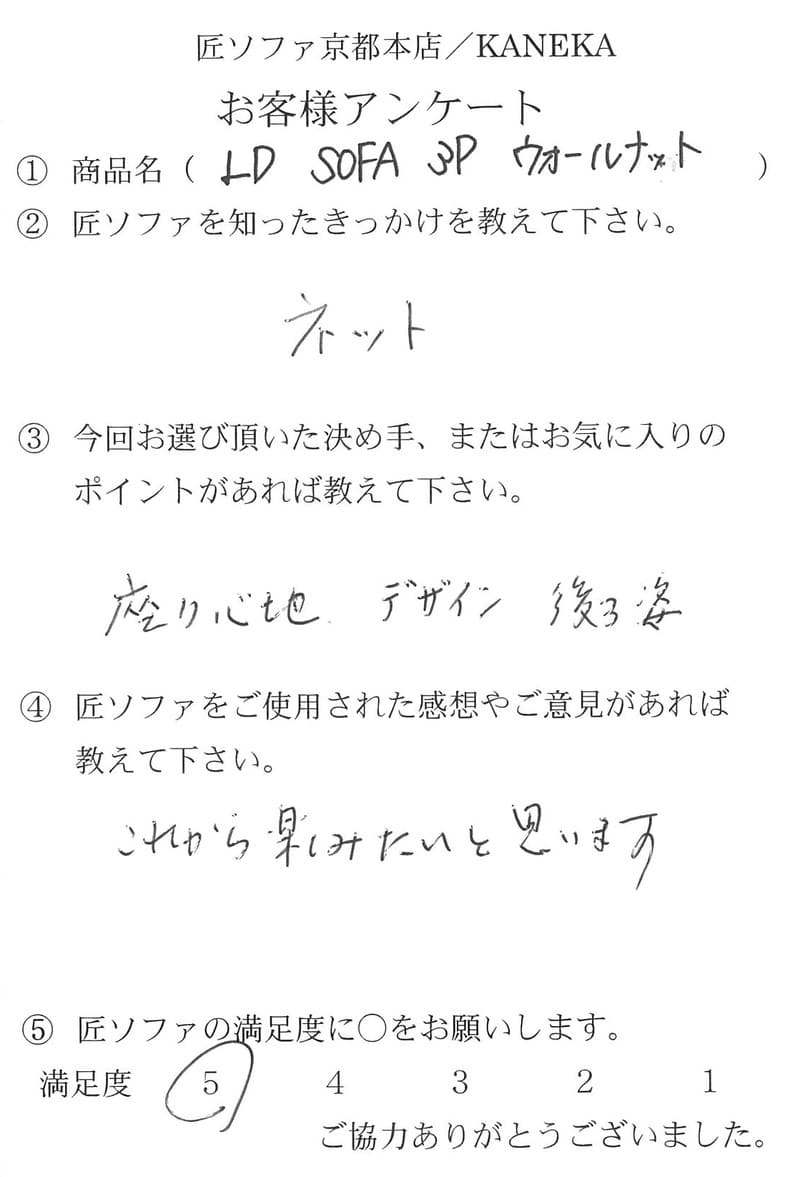 匠ソファ京都本店／KANEKA
お客様アンケート
① 商品名（ LD SOFA 3P ウォールナット ）
② 匠ソファを知ったきっかけを教えて下さい。
ネット
③ 今回お選び頂いた決め手、またはお気に入りの
ポイントがあれば教えて下さい。
座り心地 デザイン 後ろ姿
④ 匠ソファをご使用された感想やご意見があれば
教えて下さい。
これから楽しみたいと思います
⑤ 匠ソファの満足度に○をお願いします。
満足度 5 4 3 2 1
ご協力ありがとうございました。